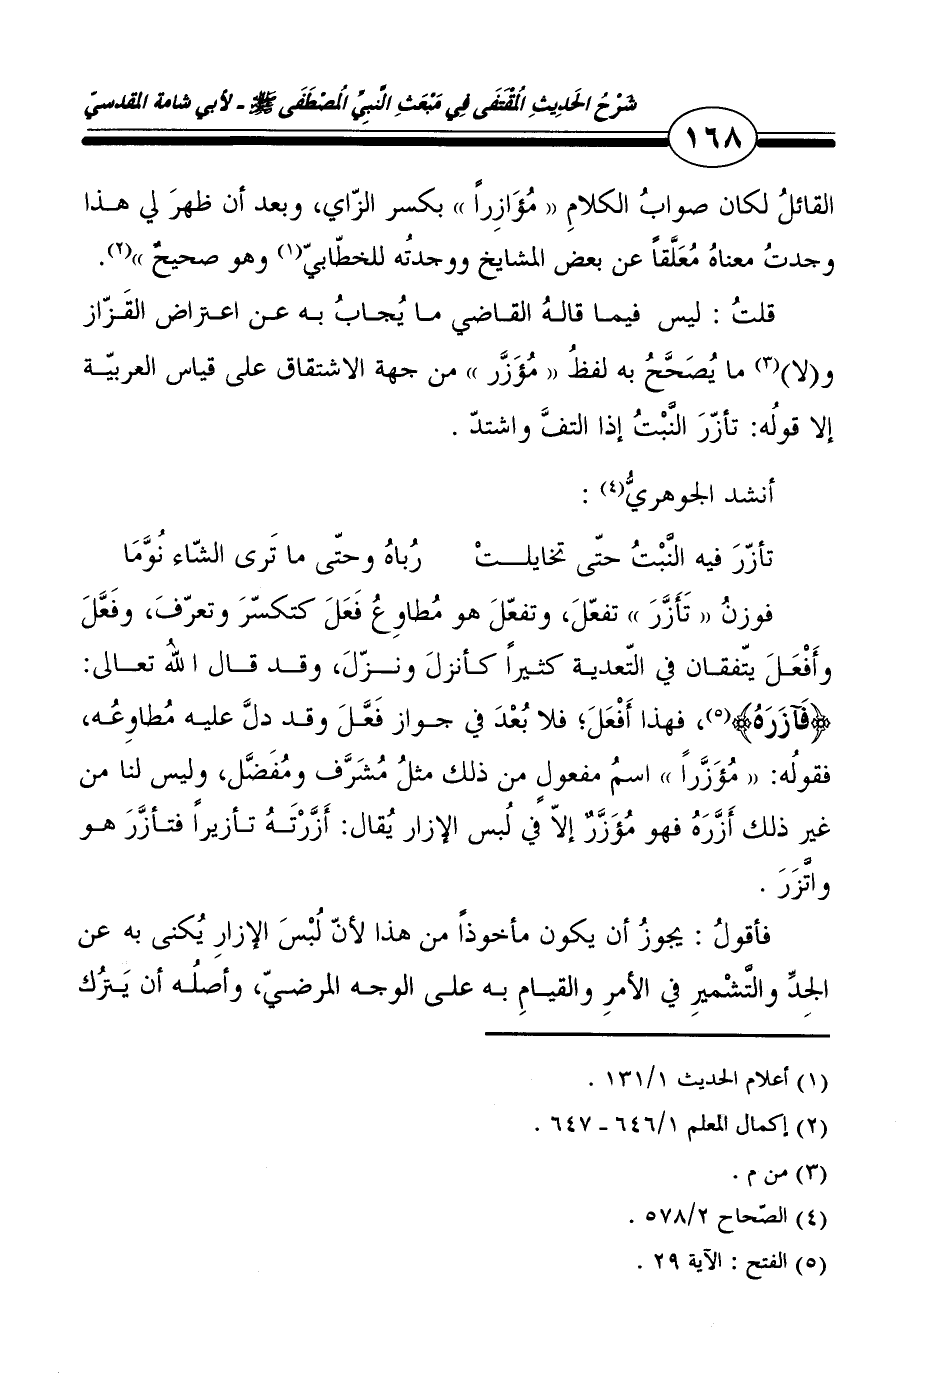 شَرْحُ الحَدِيثِ المُقْتَفَى فِي مَبْعَثِ النَّبِيِّ المُصْطَفَى ﷺ - لأبي شامة المقدسيّ
١٦٨
القائلُ لكان صوابُ الكلامِ « مُؤَازِراً » بكسر الزّاي، وبعد أن ظهرَ لي هـذا
وجدتُ معناهُ مُعَلَّقاً عن بعض المشايخ ووجدتُه للخطّابيّ(١) وهو صحيحٌ »(٢).
قلتُ : ليس فيمـا قالهُ القـاضي مـا يُجـابُ بـه عـن اعـتراض القَـزّاز
و(لا)(٣) ما يُصَحَّحُ به لفظُ « مُؤَزَّر » من جهة الاشتقاق على قياس العربيّـة
إلا قولُه: تأزّرَ النَّبْتُ إذا التفَّ واشتدّ .
أنشد الجوهريُّ(٤) :
تأزّرَ فيه النَّبْتُ حتّى تخايلـتْ رُباهُ وحتّى ما تَرى الشّاء نُوَّمَا
فوزنُ « تَأَزَّرَ » تفعّلَ، وتفعّلَ هو مُطاوِعُ فَعَلَ كتكسّرَ وتعرّفَ، وفَعَّلَ
وأَفْعَـلَ يتّفقـان في التّعديـة كثـيراً كـأنزلَ ونـزّلَ، وقـد قـال اللهُ تعـالى:
﴿فَآزَرَهُ﴾(٥)، فهـذا أَفْعَلَ؛ فلا بُعْدَ في جـواز فَعَّلَ وقـد دلَّ عليـه مُطاوِعُـه،
فقولُه: « مُؤَزَّراً » اسمُ مفعولٍ من ذلك مثلُ مُشَرَّف ومُفَضَّل، وليس لنا من
غير ذلك أَزَّرَهُ فهو مُؤَزَّرٌ إلاّ في لُبس الإزار يُقال: أَزَّرْتَـهُ تـأزيراً فتـأزَّرَ هـو
واتَّزَرَ .
فأقولُ : يجوزُ أن يكون مأخوذاً من هذا لأنّ لُبْسَ الإزارِ يُكنى به عن
الجِدِّ والتَّشْميرِ في الأمرِ والقيـامِ بـه علـى الوجـه المرضيّ، وأصلُـه أن يَـتْرُك
(١) أعلام الحديث ١٣١/١ .
(٢) إكمال المعلم ٦٤٦/١ - ٦٤٧ .
(٣) من م .
(٤) الصّحاح ٥٧٨/٢ .
(٥) الفتح : الآية ٢٩ .